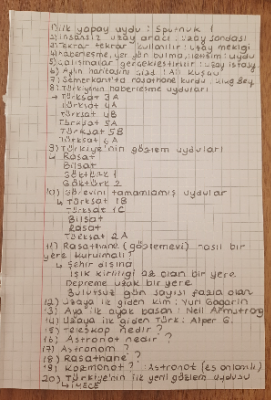 1) ilk yapay uydu : Sputnuk 1
2) insansız uzay aracı : uzay sondası
3) tekrar tekrar kullanılır : uzay mekiği
4) haberleşme, yer yön bulma, iletişim : uydu
5) çalışmalar gerçekleştirilir : uzay istasy
6) Ayın haritasını çizdi : Ali Kuşçu
7) Semerkant'ta rasathane kurdu : Uluğ Bey
8) Türkiye'nin haberleşme uyduları
↳ Türksat 3A
Türksat 4A
Türksat 4B
Türksat 5A
Türksat 5B
Türksat 6A
9) Türkiye'nin gözlem uyduları
↳ Rasat
Bilsat
Göktürk 1
Göktürk 2
10) Görevini tamamlamış uydular
↳ Türksat 1B
Türksat 1C
Bilsat
Rasat
Türksat 2A
11) Rasathane (gözlemevi) nasıl bir
yere kurulmalı?
↳ Şehir dışına
Işık kirliliği az olan bir yere
Depreme uzak bir yere
Bulutsuz gün sayısı fazla olan
12) Uzaya ilk giden kim : Yuri Gagarin
13) Aya ilk ayak basan : Neil Armutrog
14) Uzaya ilk giden Türk : Alper G.
15) Teleskop nedir?
16) Astronot nedir?
17) Astronom?
18) Rasathane?
19) Kozmonot? : Astronot (eş anlamlı)
20) Türkiye'nin ilk yerli gözlem uydusu
↳ İMECE